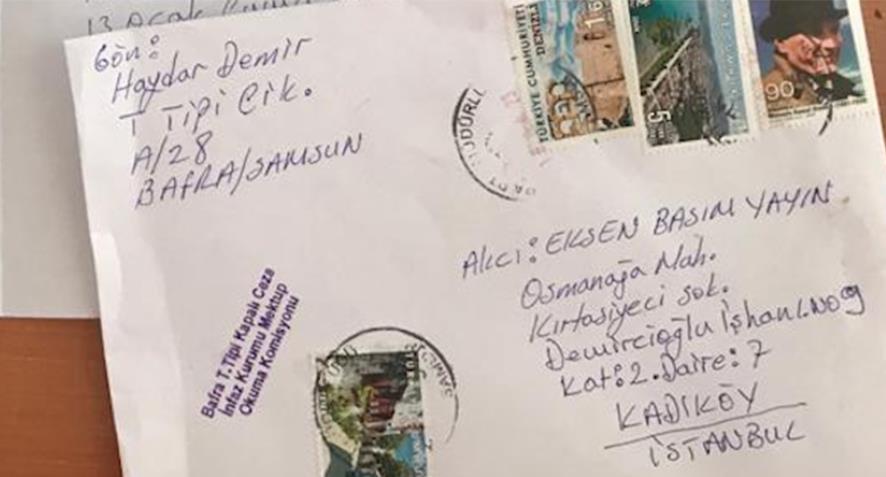 Gön:
Haydar Demir
T Tipi Cik.
A/28
BAFRA/SAMSUN
TÜRKİYE CUMHURİYETİ
DENİZLİ
5
90
Alıcı: EKSEN BASIM YAYIN
Osmanağa Mah.
Kırtasiyeci sok.
Demircioğlu İşhanı. NO 9
Kat: 2. Daire: 7
KADIKÖY
İSTANBUL
Bafra T.Tipi Kapalı Ceza
İnfaz Kurumu Mektup
Okuma Komisyonu